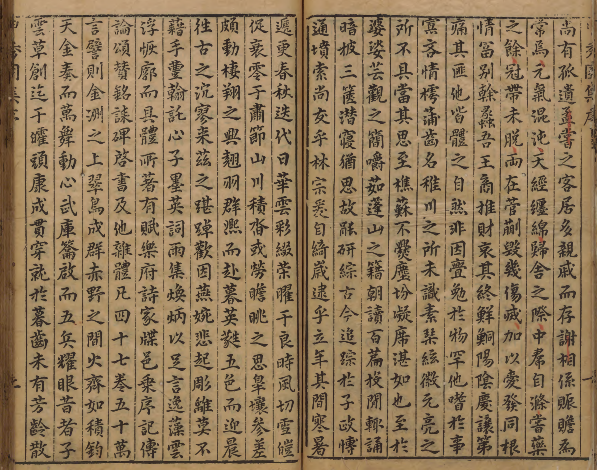 尚有孤遺孟嘗之客居多親戚而存謝相係賑贍為
常為元氣混沌天經纏綿歸舍之際中帬自滌嘗藥
之餘冠帶未脫両在菅蒯毀幾傷滅加以憂發同根
情畱別榦螽吾王裔推財哀其終鮮鮦陽陰慶讓第
痛其匪他皆體之自然非因舋勉於物罕他嗜於事
寡吝情樗蒲齒名稚川之所未識素琴絃徽元亮之
所不具當其思至樵蘇不爨塵坋凝席湛如也至於
婆娑芸觀之簡嚼茹蓬山之籍朝讀百篇投閒輒誦
暗披三篋潛寢猶思故能研綜古今追踪於子政慱
通墳索尚友乎林宗爰自綺歲逮乎立年其間寒暑
遞更春秋迭代日華雲彩綴榮曜于良時風切雪皚
促衰零于肅節山川積脊或勞瞻眺之思皐壤參差
頗動棲翔之興翱羽群凞而赴暮英甡五色而迎晨
往古之沉寥来茲之堪踔歡因燕婉悲起彫離莫不
藉手豐翰託心子墨英詞雨集煥炳以足言逸藻雲
浮恢廓而具體所著有賦樂府詩家牒邑乗序記傳
論頌贊銘誄碑啓書及他雜體凡四十七卷五十萬
言譬則金渊之上翠鳥成群赤野之間火齊如積鈞
天金奏而萬舞動心武庫籥啟而五兵耀眼昔者子
雲草創迄于皬頭康成貫穿訖於暮齒未有芳齡散